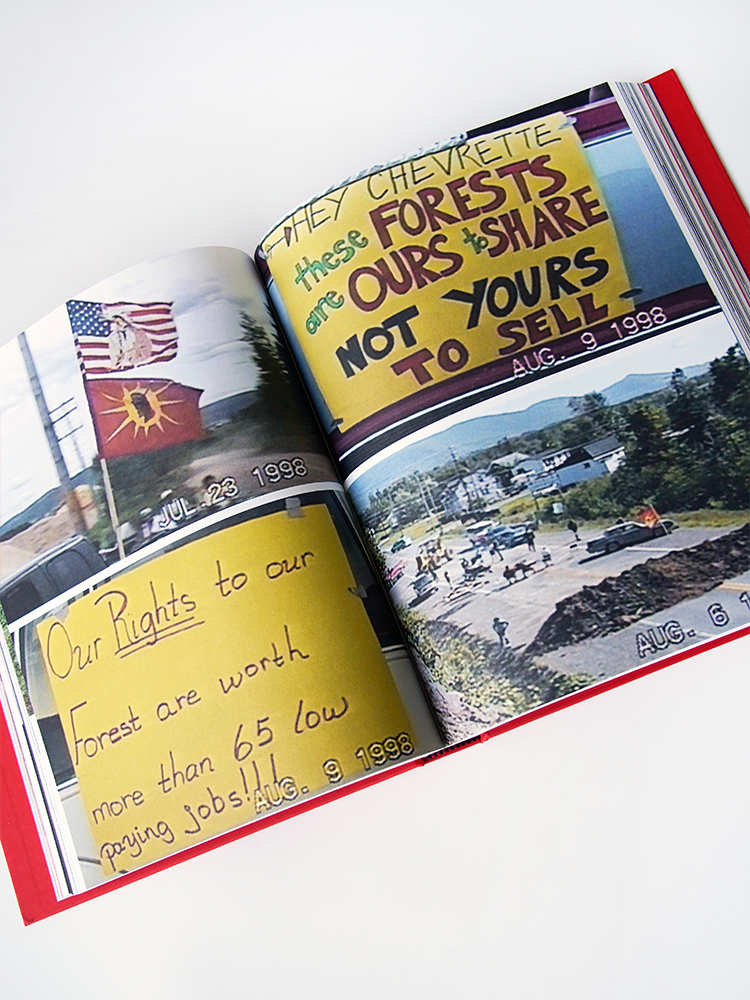 JUL.23 1998
Our Rights to our
Forest are worth
more than 65 low
paying jobs!!!
AUG. 9 1998
HEY CHEVRETTE
these FORESTS
are OURS to SHARE
NOT YOURS
TO SELL
AUG. 9 1998
AUG. 6 1